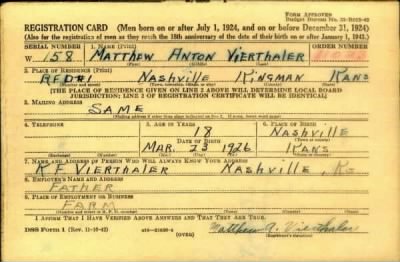 FORM APPROVED
REGISTRATION CARD (Men born on or after July 1, 1924, and on or before December 31, 1924)
(Also for the registration of men as they reach the 18th anniversary of the date of their birth on or after January 1, 1943.)
SERIAL NUMBER 1. NAME (Print) ORDER NUMBER
W 158 MATTHEW ANTON VIERTHALER
(First) (Middle) (Last)
2. PLACE OF RESIDENCE (Print)
RFD#1 NASHVILLE KINGMAN KANS
[THE PLACE OF RESIDENCE GIVEN ON LINE 2 ABOVE WILL DETERMINE LOCAL BOARD
JURISDICTION; LINE 2 OF REGISTRATION CERTIFICATE WILL BE IDENTICAL]
3. MAILING ADDRESS
SAME
4. TELEPHONE 5. AGE IN YEARS 6. PLACE OF BIRTH
18 NASHVILLE
DATE OF BIRTH
MAR. 23 1926 KANS
7. NAME AND ADDRESS OF PERSON WHO WILL ALWAYS KNOW YOUR ADDRESS
R F VIERTHALER NASHVILLE, KS
8. EMPLOYER'S NAME AND ADDRESS
FATHER
9. PLACE OF EMPLOYMENT OR BUSINESS
FARM
I AFFIRM THAT I HAVE VERIFIED ABOVE ANSWERS AND THAT THEY ARE TRUE.
DSS Form 1 (Rev. 11-16-42) (OVER) Matthew A. Vierthaler
(Registrant's signature)